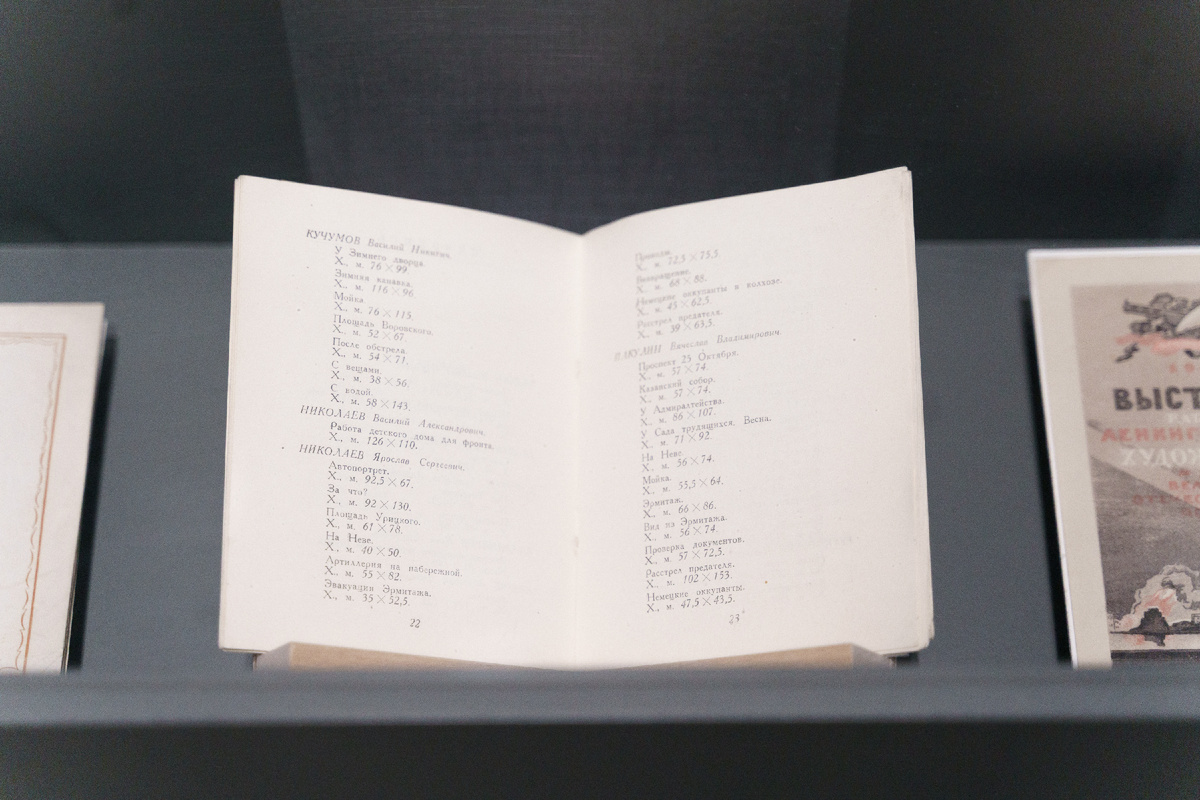 КУЧУМОВ Василий Никитич.
У Зимнего дворца.
Х., м. 76×99.
Зимняя канавка.
Х., м. 116×96.
Мойка
Х., м. 76×115.
Площадь Воровского.
Х., м. 52×67.
После обстрела.
Х., м. 54×71.
С вещами.
Х., м. 38×56.
С водой.
Х., м. 58×143.
НИКОЛАЕВ Василий Александрович.
Работа детского дома для фронта.
Х., м. 126×110.
НИКОЛАЕВ Ярослав Сергеевич.
Автопортрет.
Х., м. 92,5×67.
За что?
Х., м. 92×130.
Площадь Урицкого.
Х., м. 61×78.
На Неве.
Х., м. 40×50.
Артиллерия на набережной.
Х., м. 55×82.
Эвакуация Эрмитажа.
Х., м. 35×52,5.
22
Проводы.
Х., м. 72,5×75,5.
Возвращение.
Х., м. 68×88.
Немецкие оккупанты в колхозе.
Х., м. 45×62,5.
Расстрел предателя.
Х., м. 39×63,5.
ПАКУЛИН Вячеслав Владимирович.
Проспект 25 Октября.
Х., м. 57×74.
Казанский собор.
Х., м. 57×74.
У Адмиралтейства.
Х., м. 86×107.
У Сада трудящихся. Весна.
Х., м. 71×92.
На Неве.
Х., м. 56×74.
Мойка.
Х., м. 55,5×64.
Эрмитаж.
Х., м. 66×86.
Вид из Эрмитажа.
Х., м. 56×74.
Проверка документов.
Х., м. 57×72,5.
Расстрел предателя.
Х., м. 102×153.
Немецкие оккупанты.
Х., м. 47,5×43,5.
23
ВЫСТ
ЛЕНИНГ
ХУДОЖ